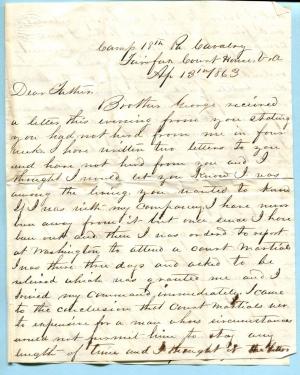 Camp 18th Pa Cavalry
Fairfax Court House Va
Ap 13th 1863
Dear Father
Brother George received
a letter this evening from you stating
you had not hird from me in four
weeks I have written two letters to you
and have not hird from you and I
thought I would let you know I was
among the living. you wanted to know
if I was with my Company. I have never
ben away from it but once since I have
ben out and then I was ordered to report
at Washington to attend a Court Martial
I was there three days and asked to be
relieved which was granted me and I
joined my Command immediately I came
to the conclusion that Court Martials wer
to expensive for a man whos circumstances
would not permit him to stay any
length of time and I thought it the better